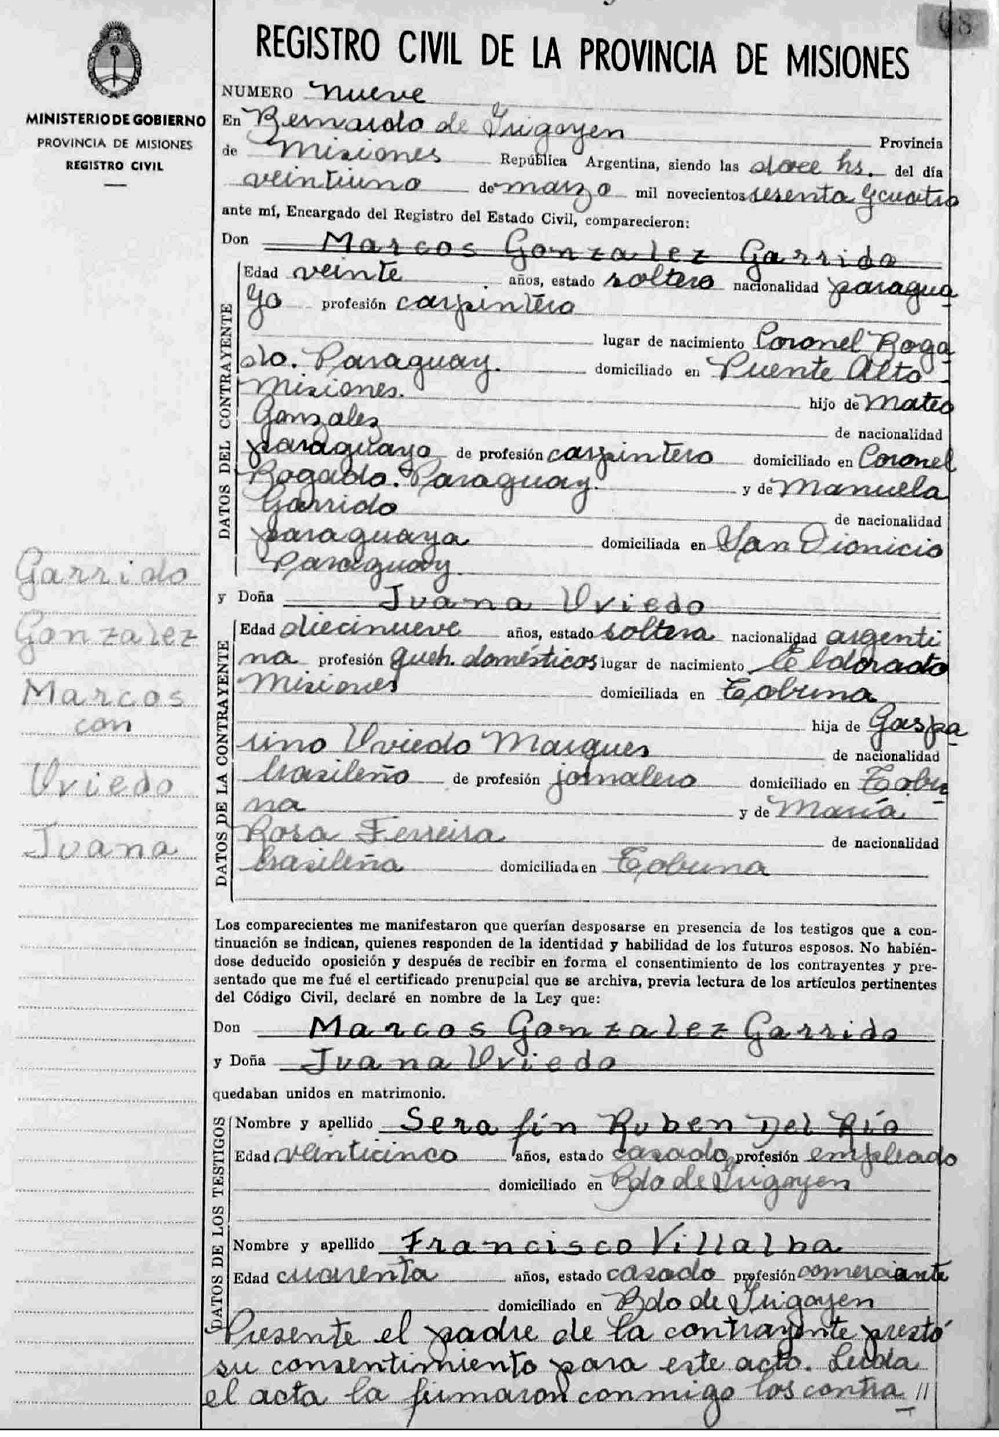 68
REGISTRO CIVIL DE LA PROVINCIA DE MISIONES
MINISTERIO DE GOBIERNO
PROVINCIA DE MISIONES
REGISTRO CIVIL
NUMERO nueve
En Bernardo de Irigoyen Provincia
de Misiones República Argentina, siendo las doce hs. del día
veintiuno de marzo mil novecientos sesenta y cuatro
ante mí, Encargado del Registro del Estado Civil, comparecieron:
Don Marcos Gonzalez Garrido
DATOS DEL CONTRAYENTE
Edad veinte años, estado soltero nacionalidad paragua
yo profesión carpintero
lugar de nacimiento Coronel Boga
do. Paraguay. domiciliado en Puente Alto
Misiones. hijo de Mateo
Gonzalez de nacionalidad
paraguayo de profesión carpintero domiciliado en Coronel
Bogado. Paraguay. y de Manuela
Garrido de nacionalidad
paraguaya domiciliada en San Dionicio
Paraguay.
y Doña Juana Uviedo
DATOS DE LA CONTRAYENTE
Edad diecinueve años, estado soltera nacionalidad argenti
na profesión queh. domésticos lugar de nacimiento Eldorado
Misiones domiciliada en Tobuna
hija de Gaspa
rino Uviedo Marques de nacionalidad
brasileño de profesión jornalero domiciliado en Tobu
na y de María
Rosa Ferreira de nacionalidad
brasileña domiciliada en Tobuna
Garrido
Gonzalez
Marcos
con
Uviedo
Juana
Los comparecientes me manifestaron que querían desposarse en presencia de los testigos que a con-
tinuación se indican, quienes responden de la identidad y habilidad de los futuros esposos. No habién-
dose deducido oposición y después de recibir en forma el consentimiento de los contrayentes y pre-
sentado que me fué el certificado prenupcial que se archiva, previa lectura de los artículos pertinentes
del Código Civil, declaré en nombre de la Ley que:
Don Marcos Gonzalez Garrido
y Doña Juana Uviedo
quedaban unidos en matrimonio.
DATOS DE LOS TESTIGOS
Nombre y apellido Serafín Ruben Del Río
Edad veinticinco años, estado casado, profesión empleado
domiciliado en Bdo de Irigoyen
Nombre y apellido Francisco Villalba
Edad cuarenta años, estado casado profesión comerciante
domiciliado en Bdo de Irigoyen
Presente el padre de la contrayente prestó
su consentimiento para este acto. Leida
el acta la firmaron conmigo los contra //